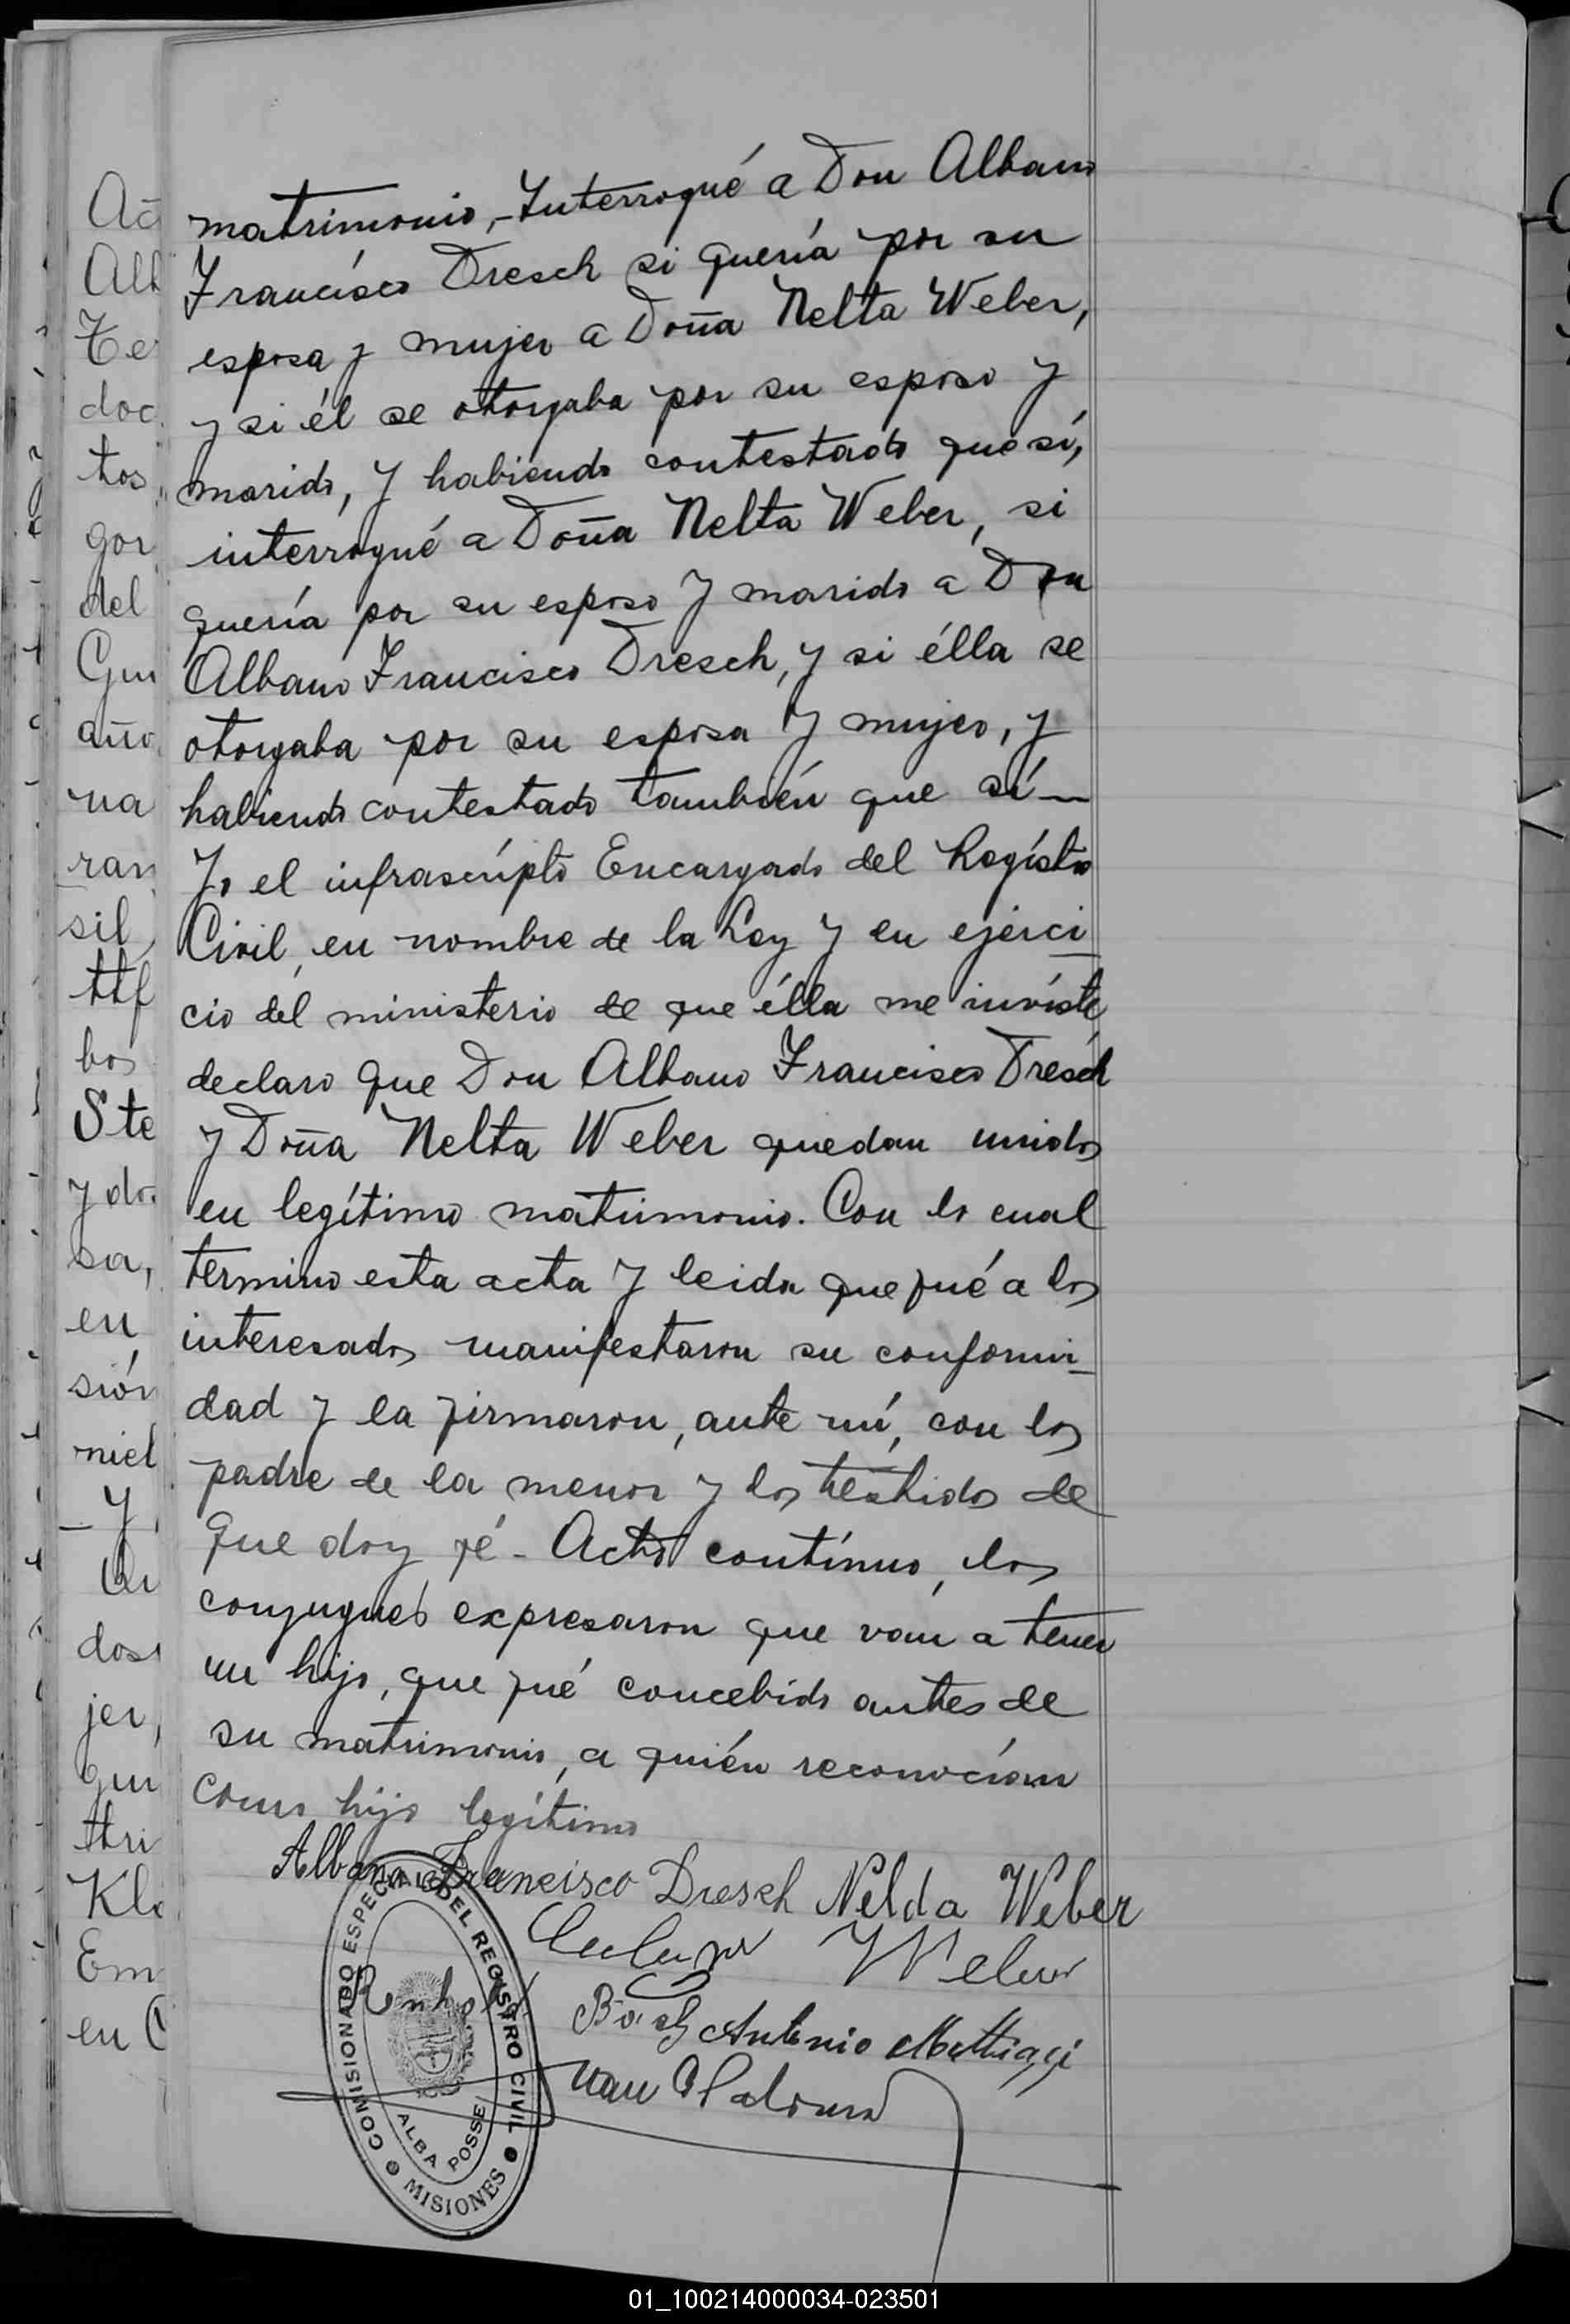 matrimonio,-Interrogué a Don Albano
Francisco Dresch si quería por su
esposa y mujer a Doña Nelta Weber,
y si él se otorgaba por su esposo y
marido, y habiendo contestado que sí,
interrogué a Doña Nelta Weber, si
quería por su esposo y marido a Don
Albano Francisco Dresch, y si élla se
otorgaba por su esposa y mujer, y
habiendo contestado también que sí—
Yo el infrascripto Encargado del Registro
Civil, en nombre de la Ley y en ejerci
cio del ministerio de que élla me inviste
declaro que Don Albano Francisco Dresch
y Doña Nelta Weber quedan unidos
en legítimo matrimonio. Con lo cual
termino esta acta y leida que fué a los
interesados manifestaron su conformi-
dad y la firmaron, ante mí, con los
padre de la menor y los testidos de
que doy fé - Acto contínuo, los
conyugues expresaron que van a tener
un hijo, que fué concebido antes de
su matrimonio, a quién reconocían
como hijo legítimo
Albano Francisco Dresch Nelda Weber
Weber
Antonio Mattiazi
COMISIONADO ESPECIAL DEL REGISTRO CIVIL
ALBA POSSE
MISIONES
Ac
Alb
Te
doc
tos,
gor
del
Gui
año
na
ran
sil
ttf
bos
Ste
y do
sa,
en
sión
niel
y
dos
jer,
qui
tri
Kl
Em
en C
01_100214000034-023501